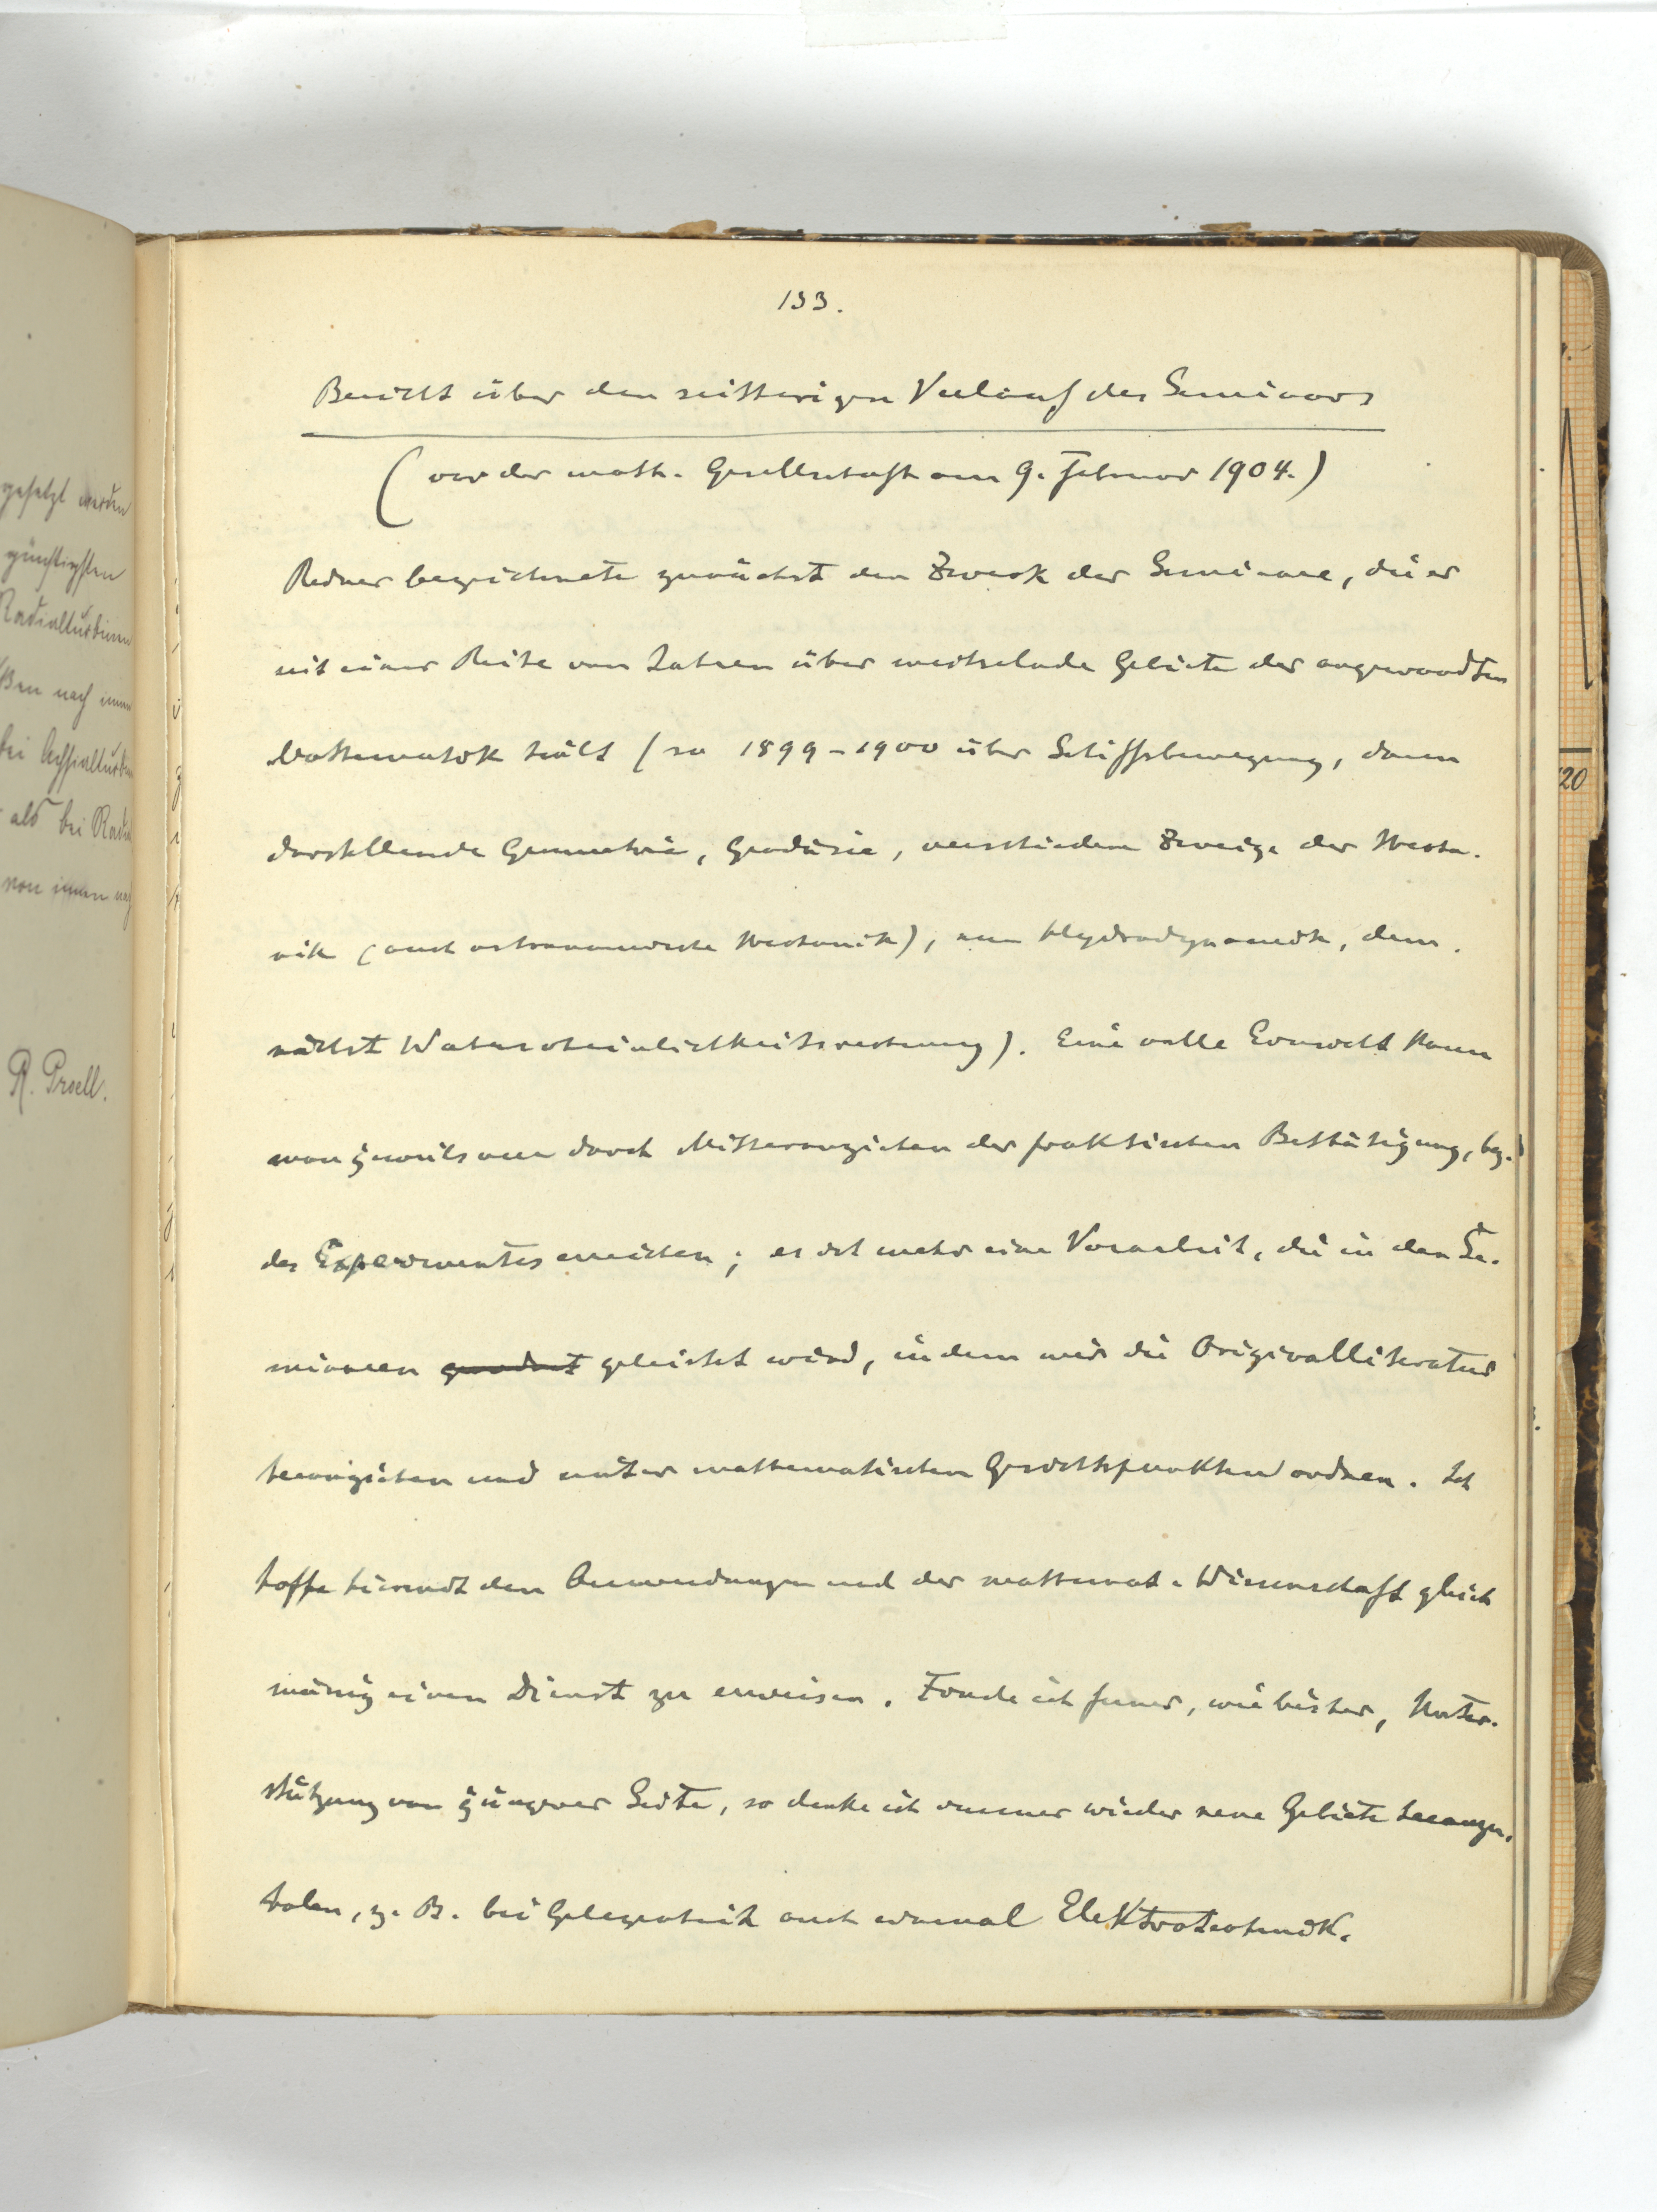 133.
Bericht über den seitherigen Verlauf des Seminars
(vor der math. Gesellschaft am 9. Februar 1904.)
Redner bezeichnete zunächst den Zweck der Seminare, die er
seit einer Reihe von Jahren über wechselnde Gebiete der angewandten
Mathematik hält (so 1899-1900 über Schiffsbewegung, dann
darstellende Geometrie, Geodäsie, verschiedene Zweige der Mecha-
nik (auch astronomische Mechanik), nun Hydrodynamik, dem-
nächst Wahrscheinlichkeitsrechnung). Eine volle Einsicht kann
man jeweils nur durch Mitheranziehen der praktischen Bethätigung, bez.
des Experimentes erreichen; es ist mehr eine Vorarbeit, die in den Se-
minaren geleistet wird, indem wir die Originalliteratur
heranziehen und unter mathematischen Gesichtspunkten ordnen. Ich
hoffe hiermit den Anwendungen und der mathemat. Wissenschaft gleich
mässig einen Dienst zu erweisen. Finde ich ferner, wie bisher, Unter-
stützung von jüngerer Seite, so denke ich immer wieder neue Gebiete heranzu-
holen, z. B. bei Gelegenheit auch einmal Elektrotechnik.
gesetzt werden
günstigsten
Radialturbinen
ßen nach innen
bei Achsialturb
als bei Radia
von innen nach
R. Proell.
20